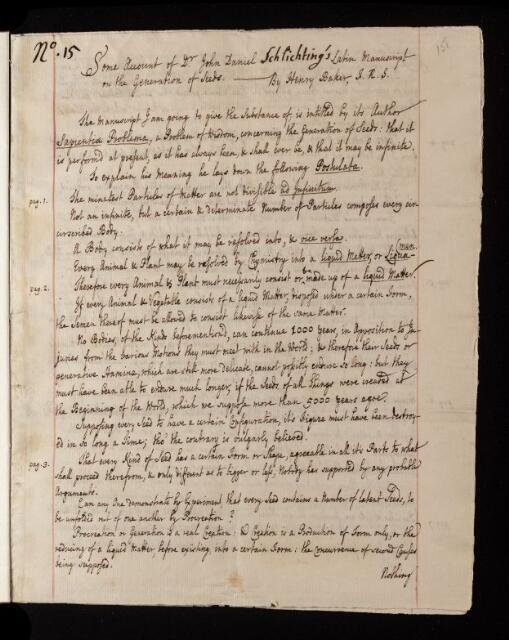 No. 15
151
Some Account of Dr. John Daniel Schlichting's Latin Manuscript
on the Generation of Seeds. — By Henry Baker, F.R.S.
The Manuscript I am going to give the Substance of is intitled by its Author
Sapientiæ Problema, a Problem of Wisdom, concerning the Generation of Seeds: that it
is perform'd at present, as it has always been, & shall ever be, & that it may be infinite.
To explain his Meaning he lays down the following Postulata.
pag. 1. The minutest Particles of Matter are not divisible ad Infinitum.
Not an infinite, but a certain & determinate Number of Particles composes every cir-
cumscribed Body.
A Body consists of what it may be resolved into, & vice versa.
Every Animal & Plant may be resolved by Chymistry into a liquid Matter, or Liqua-
men.
pag. 2. Therefore every Animal & Plant must necessarily consist or be made up of a liquid Matter.
If every Animal & Vegetable consists of a liquid Matter, disposed under a certain Form,
the Semen thereof must be allowed to consist likewise of the same Matter.
No Bodies, of the Kinds beforementiond, can continue 1000 years, in opposition to In-
juries from the various Motions they must meet with in the World; & therefore their Seeds or
generative Stamina, which are still more delicate, cannot possibly endure so long: but they
must have been able to endure much longer, if the Seeds of all Things were created at
the Beginning of the World, which we suppose more than 5000 years agoe.
Supposing every Seed to have a certain Configuration, it's Figure must have been destroy-
ed in so long a Time; tho' the contrary is vulgarly believed.
pag. 3. That every Kind of Seed has a certain Form or Shape, agreeable in all its Parts to what
shall proceed therefrom, & only different as to bigger or less, Nobody has supported by any probable
Arguments.
Can any One demonstrate by Experiment that every Seed contains a Number of latent Seeds, to
be unfolded out of one another by Procreation?
Procreation or Generation is a real Creation: & Creation is a Production of Form only, or the
reducing of a liquid Matter before existing, into a certain Form: the Concurrence of second Causes
being supposed.
Nothing